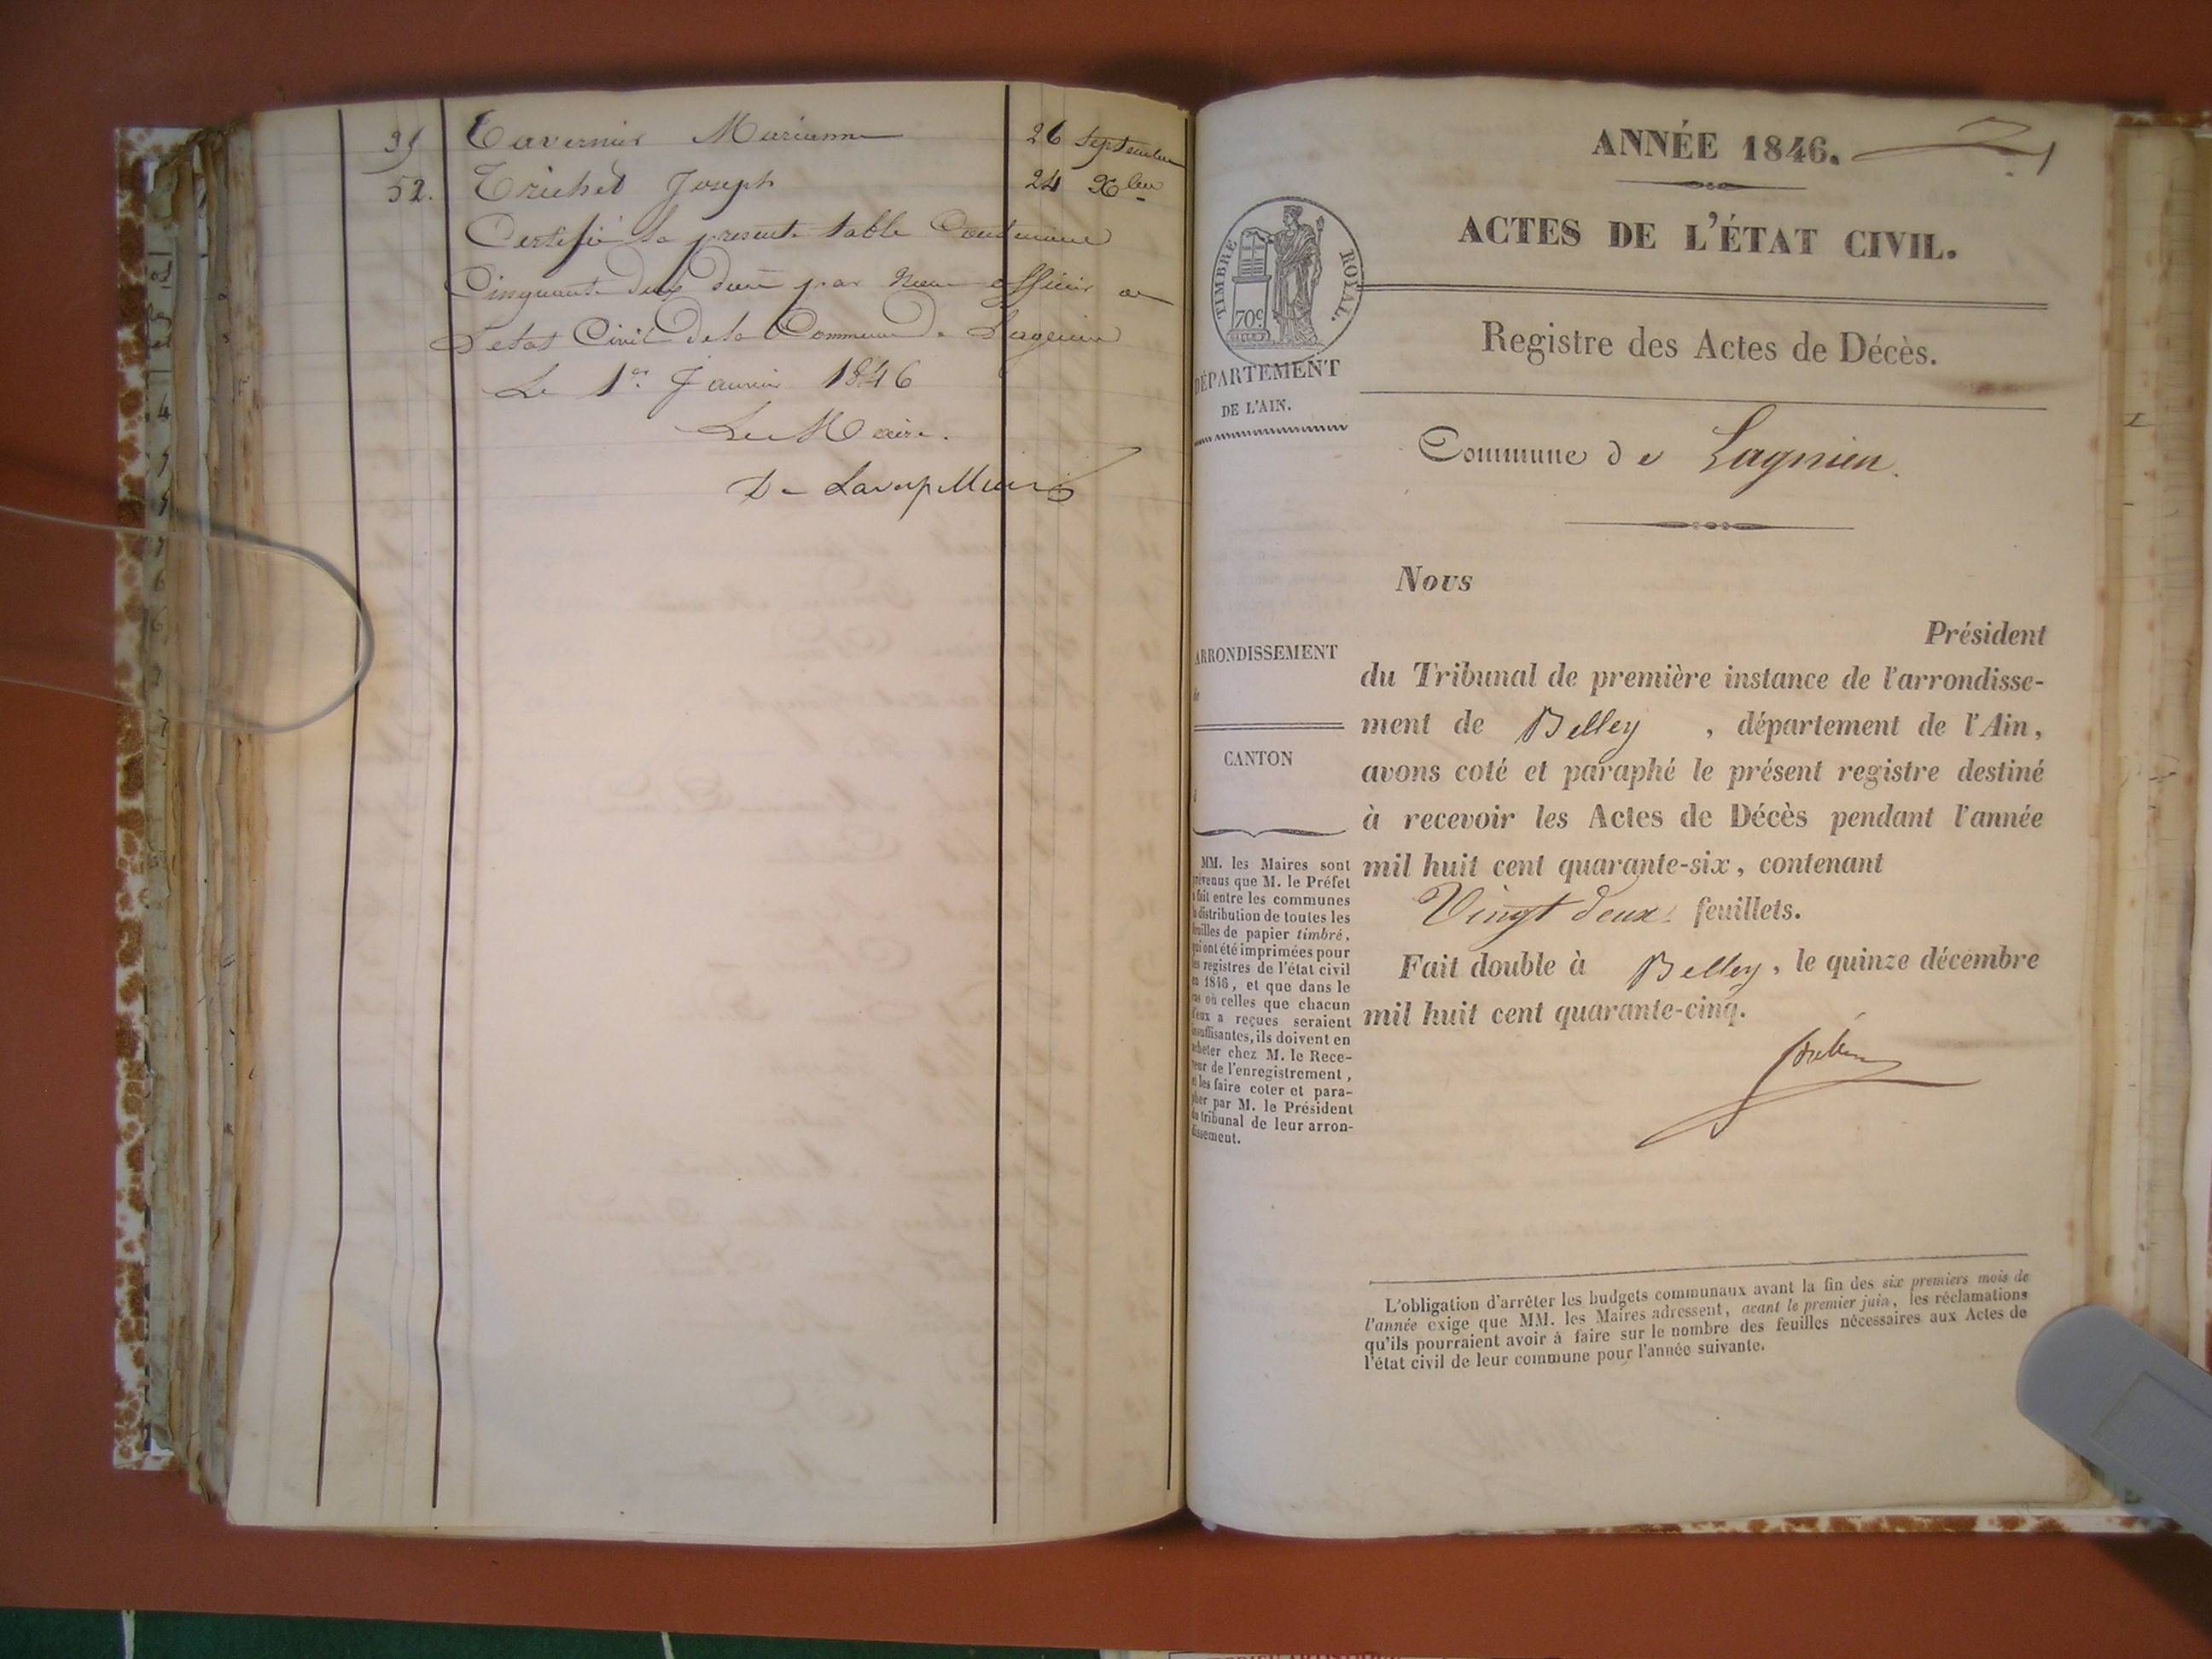 Tavernier Marianne 26 Septembre
52. Trichet Joseph 24 Xbre
Certifié la présente table Contenant
Cinquante deux par Nous officier
D'état Civil de la Commune de Lagnieu
Le 1er Janvier 1846
Le Maire.
ANNÉE 1846.
ACTES DE L'ÉTAT CIVIL.
TIMBRE ROYAL.
70c
DÉPARTEMENT
DE L'AIN.
Registre des Actes de Décès.
Commune de Lagnieu.
Nous
Président
ARRONDISSEMENT
du Tribunal de première instance de l'arrondisse-
ment de Belley, département de l'Ain,
CANTON
avons coté et paraphé le présent registre destiné
à recevoir les Actes de Décès pendant l'année
mil huit cent quarante-six, contenant
Vingt deux feuillets.
Fait double à Belley, le quinze décembre
mil huit cent quarante-cinq.
MM. les Maires sont
prévenus que M. le Préfet
a fait entre les communes
la distribution de toutes les
feuilles de papier timbré,
qui ont été imprimées pour
les registres de l'état civil
en 1846, et que dans le
cas où celles que chacun
d'eux a reçues seraient
insuffisantes, ils doivent en
acheter chez M. le Rece-
veur de l'enregistrement,
et les faire coter et para-
pher par M. le Président
du tribunal de leur arron-
dissement.
L'obligation d'arrêter les budgets communaux avant la fin des six premiers mois de
l'année exige que MM. les Maires adressent, avant le premier juin, les réclamations
qu'ils pourraient avoir à faire sur le nombre des feuilles nécessaires aux Actes de
l'état civil de leur commune pour l'année suivante.